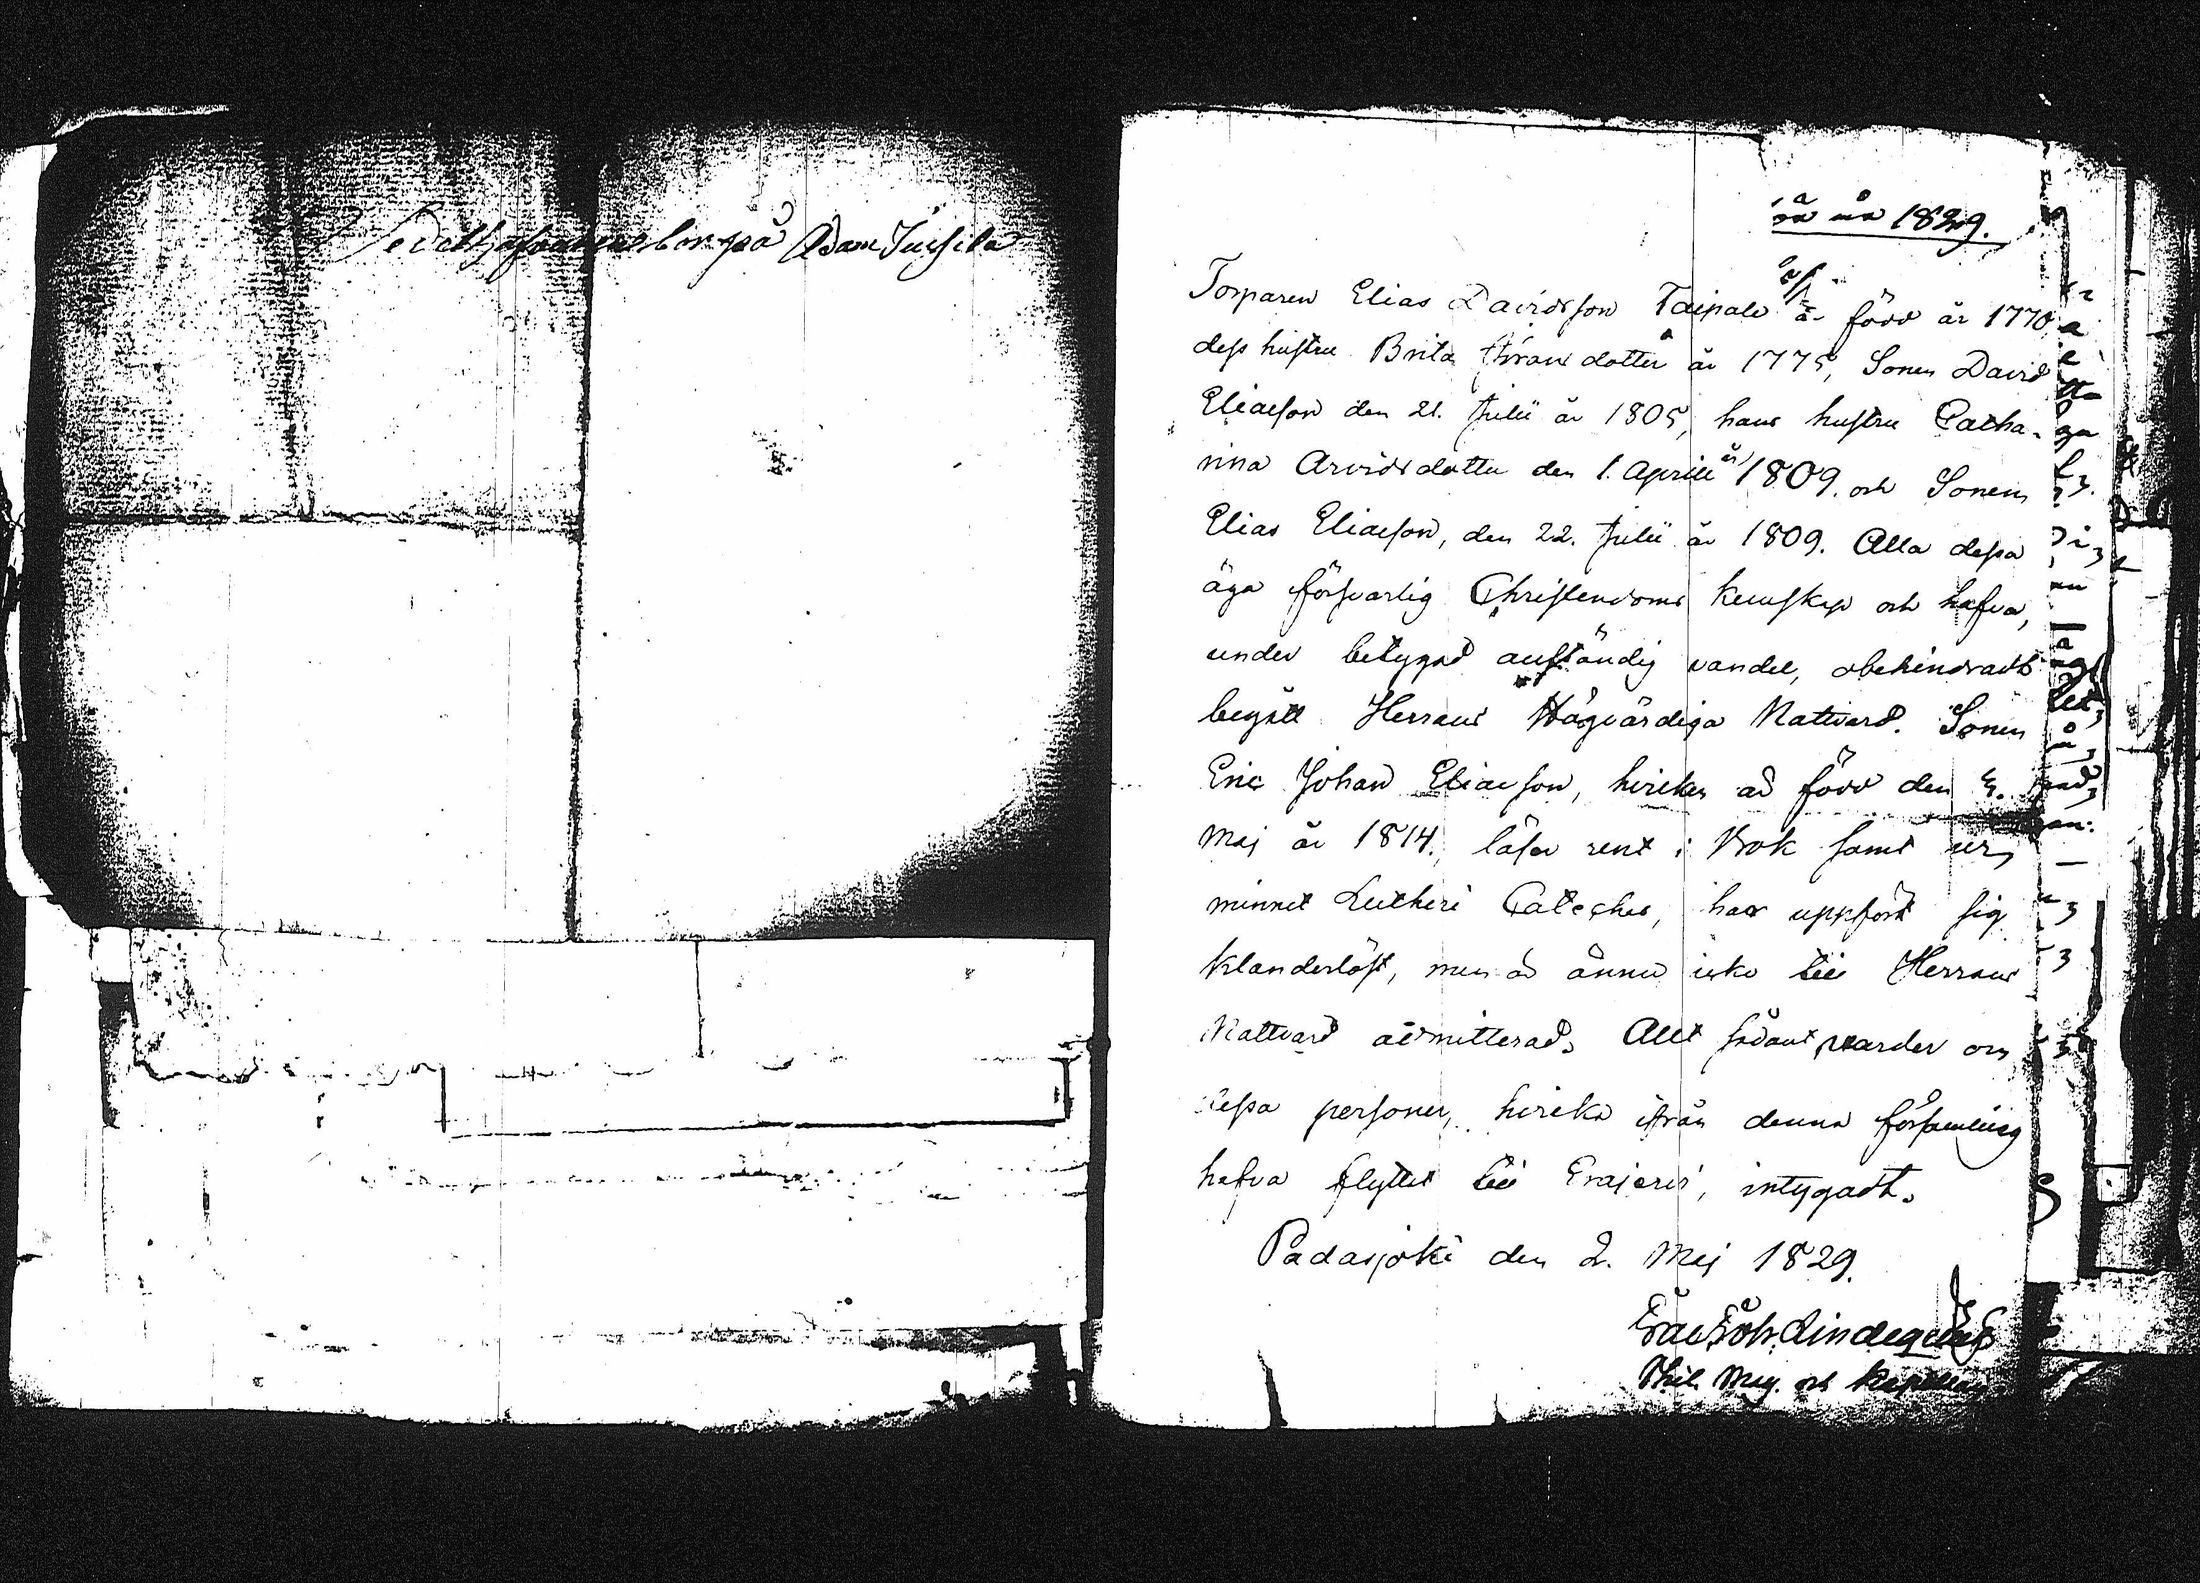 på Adam
1829.
Torparen Elias Davidsson Taipale är född år 1770
dess hustru Brita dotter år 1775, Sonen David
Eliasson den 21. Julii år 1805, hans hustru Catha-
rina Arvidsdotter den 1. Aprill år 1809. och Sonen
Elias Eliasson, den 22. Julii år 1809. Alla dessa
äga försvarlig Christendoms kunskap och hafva,
under betygad anständig vandel, obehindradt
begått Herrans Högvärdiga Nattvard. Sonen
Eric Johan Eliasson, hvilken är född den
Maj år 1814. läser rent i Bok samt ur
minnet Lutheri Cateches, har uppfört sig
klanderlöst, men är ännu icke till Herrans
Nattvard admitterad. Allt sådant varder om
dessa personer, hvilka ifrån denna församling
hafva flyttat till Erajervi, intygadt.
Padasjoki den 2. Maj 1829.
Lindeqvist
Phil. Mag. och Kapellan